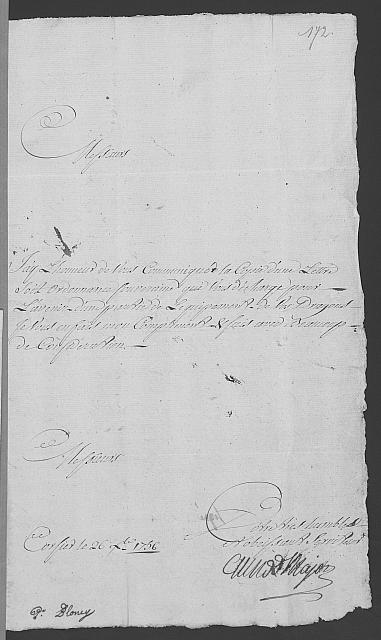 172
Messieurs
Jay L'honneur de Vous Communiquer la Copie d'une Lettre
Soit Ordonnance Souveraine qui Vous décharge pour
L'avenir d'une partie de L'equipement de vos Dragons
Je Vous en fais mon Compliment & suis avec beaucoup
de Consideration
Messieurs
Votre tres humble
et obeissant Serviteur
Corsier le 26 1756
Major
Pr. Bloney